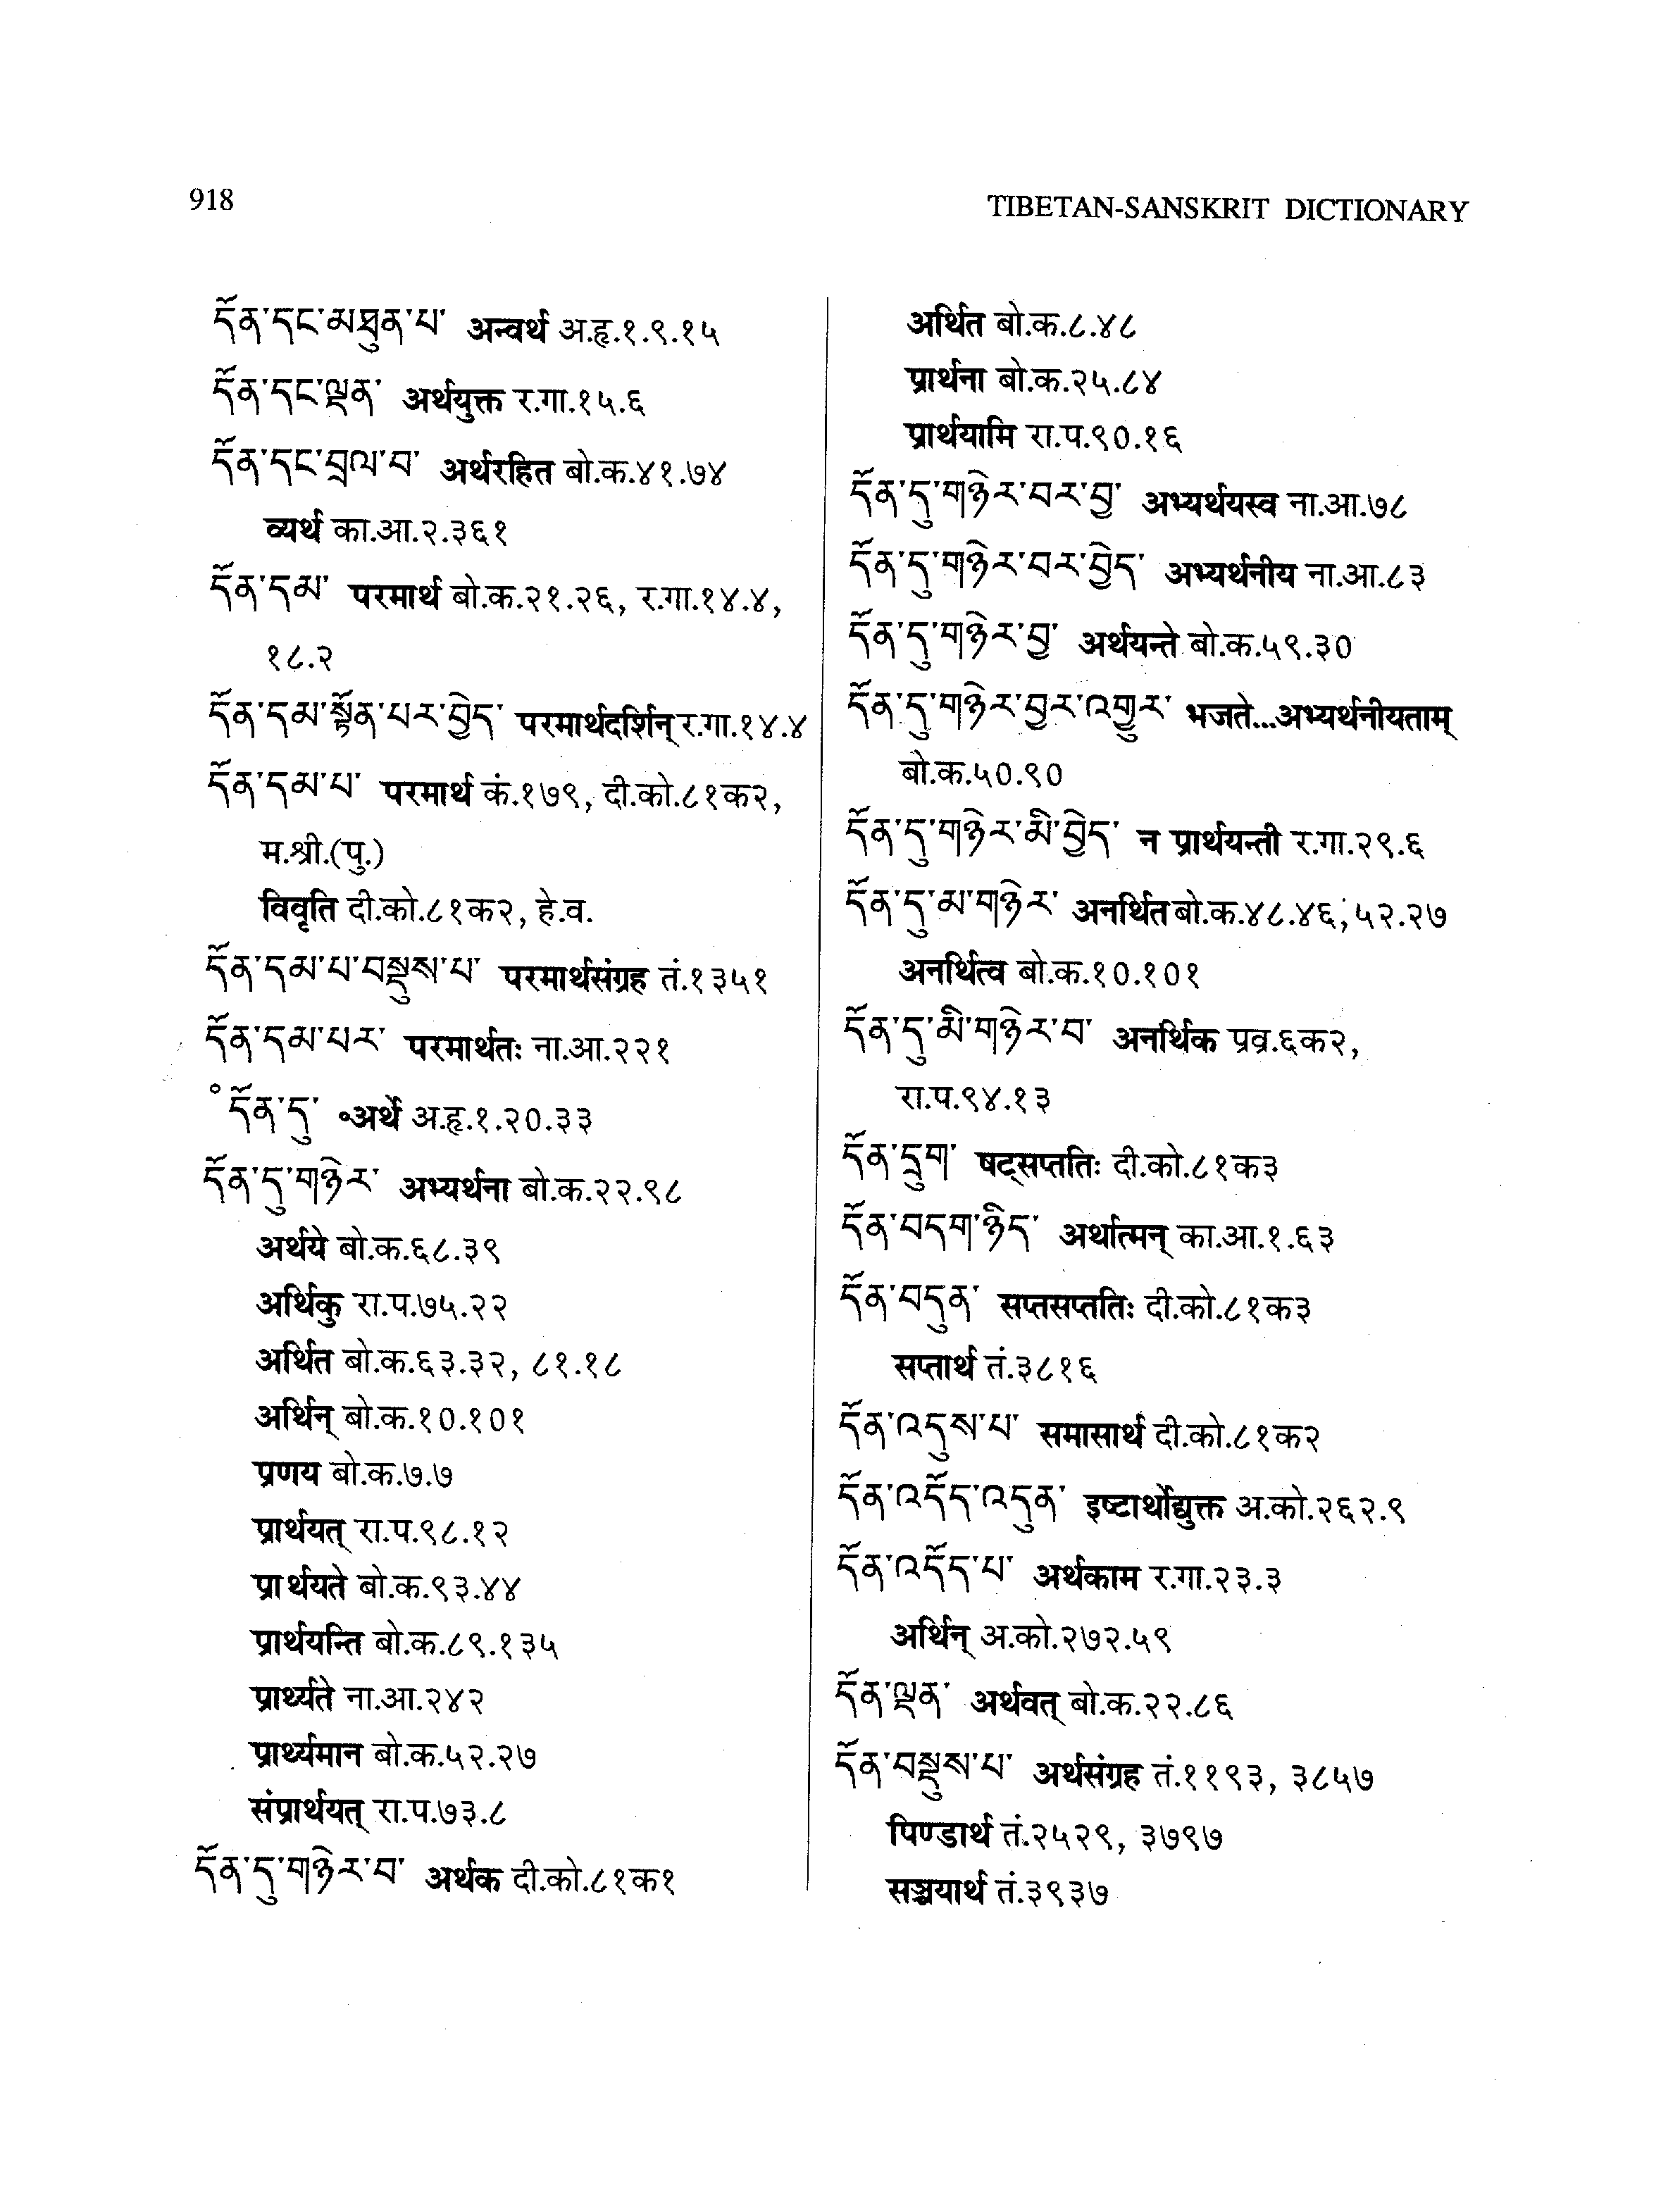 918
TIBETAN-SANSKRIT DICTIONARY
དོན་དང་མཐུན་པ་ अन्वर्थ अ.हृ.१.९.१५
དོན་དང་ལྡན་ अर्थयुक्त र.गा.१५.६
དོན་དང་བྲལ་བ་ अर्थरहित बो.क.४१.७४
व्यर्थ का.आ.२.३६१
དོན་དམ་ परमार्थ बो.क.२१.२६, र.गा.१४.४,
१८.२
དོན་དམ་སྟོན་པར་བྱེད་ परमार्थदर्शिन् र.गा.१४.४
དོན་དམ་པ་ परमार्थ कं.१७९, दी.को.८१क२,
म.श्री.(पु.)
विवृति दी.को.८१क२, हे.व.
དོན་དམ་པ་བསྡུས་པ་ परमार्थसंग्रह तं.१३५१
དོན་དམ་པར་ परमार्थतः ना.आ.२२१
°དོན་དུ་ ॰अर्थे अ.हृ.१.२०.३३
དོན་དུ་གཉེར་ अभ्यर्थना बो.क.२२.९८
अर्थये बो.क.६८.३९
अर्थिकु रा.प.७५.२२
अर्थित बो.क.६३.३२, ८१.१८
अर्थिन् बो.क.१०.१०१
प्रणय बो.क.७.७
प्रार्थयत् रा.प.९८.१२
प्रार्थयते बो.क.९३.४४
प्रार्थयन्ति बो.क.८९.१३५
प्रार्थ्यते ना.आ.२४२
प्रार्थ्यमान बो.क.५२.२७
संप्रार्थयत् रा.प.७३.८
དོན་དུ་གཉེར་བ་ अर्थक दी.को.८१क१
अर्थित बो.क.८.४८
प्रार्थना बो.क.२५.८४
प्रार्थयामि रा.प.९०.१६
དོན་དུ་གཉེར་བར་བྱ་ अभ्यर्थयस्व ना.आ.७८
དོན་དུ་གཉེར་བར་བྱེད་ अभ्यर्थनीय ना.आ.८३
དོན་དུ་གཉེར་བྱ་ अर्थयन्ते बो.क.५९.३०
དོན་དུ་གཉེར་བྱར་འགྱུར་ भजते...अभ्यर्थनीयताम्
बो.क.५०.९०
དོན་དུ་གཉེར་མི་བྱེད་ न प्रार्थयन्ती र.गा.२९.६
དོན་དུ་མ་གཉེར་ अनर्थित बो.क.४८.४६, ५२.२७
अनर्थित्व बो.क.१०.१०१
དོན་དུ་མི་གཉེར་བ་ अनर्थिक प्रव्र.६क२,
रा.प.९४.१३
དོན་དྲུག་ षट्सप्ततिः दी.को.८१क३
དོན་བདག་ཉིད་ अर्थात्मन् का.आ.१.६३
དོན་བདུན་ सप्तसप्ततिः दी.को.८१क३
सप्तार्थ तं.३८१६
དོན་འདུས་པ་ समासार्थ दी.को.८१क२
དོན་འདོད་འདུན་ इष्टार्थोद्युक्त अ.को.२६२.९
དོན་འདོད་པ་ अर्थकाम र.गा.२३.३
अर्थिन् अ.को.२७२.५९
དོན་ལྡན་ अर्थवत् बो.क.२२.८६
དོན་བསྡུས་པ་ अर्थसंग्रह तं.११९३, ३८५७
पिण्डार्थ तं.२५२९, ३७९७
सञ्चयार्थ तं.३९३७